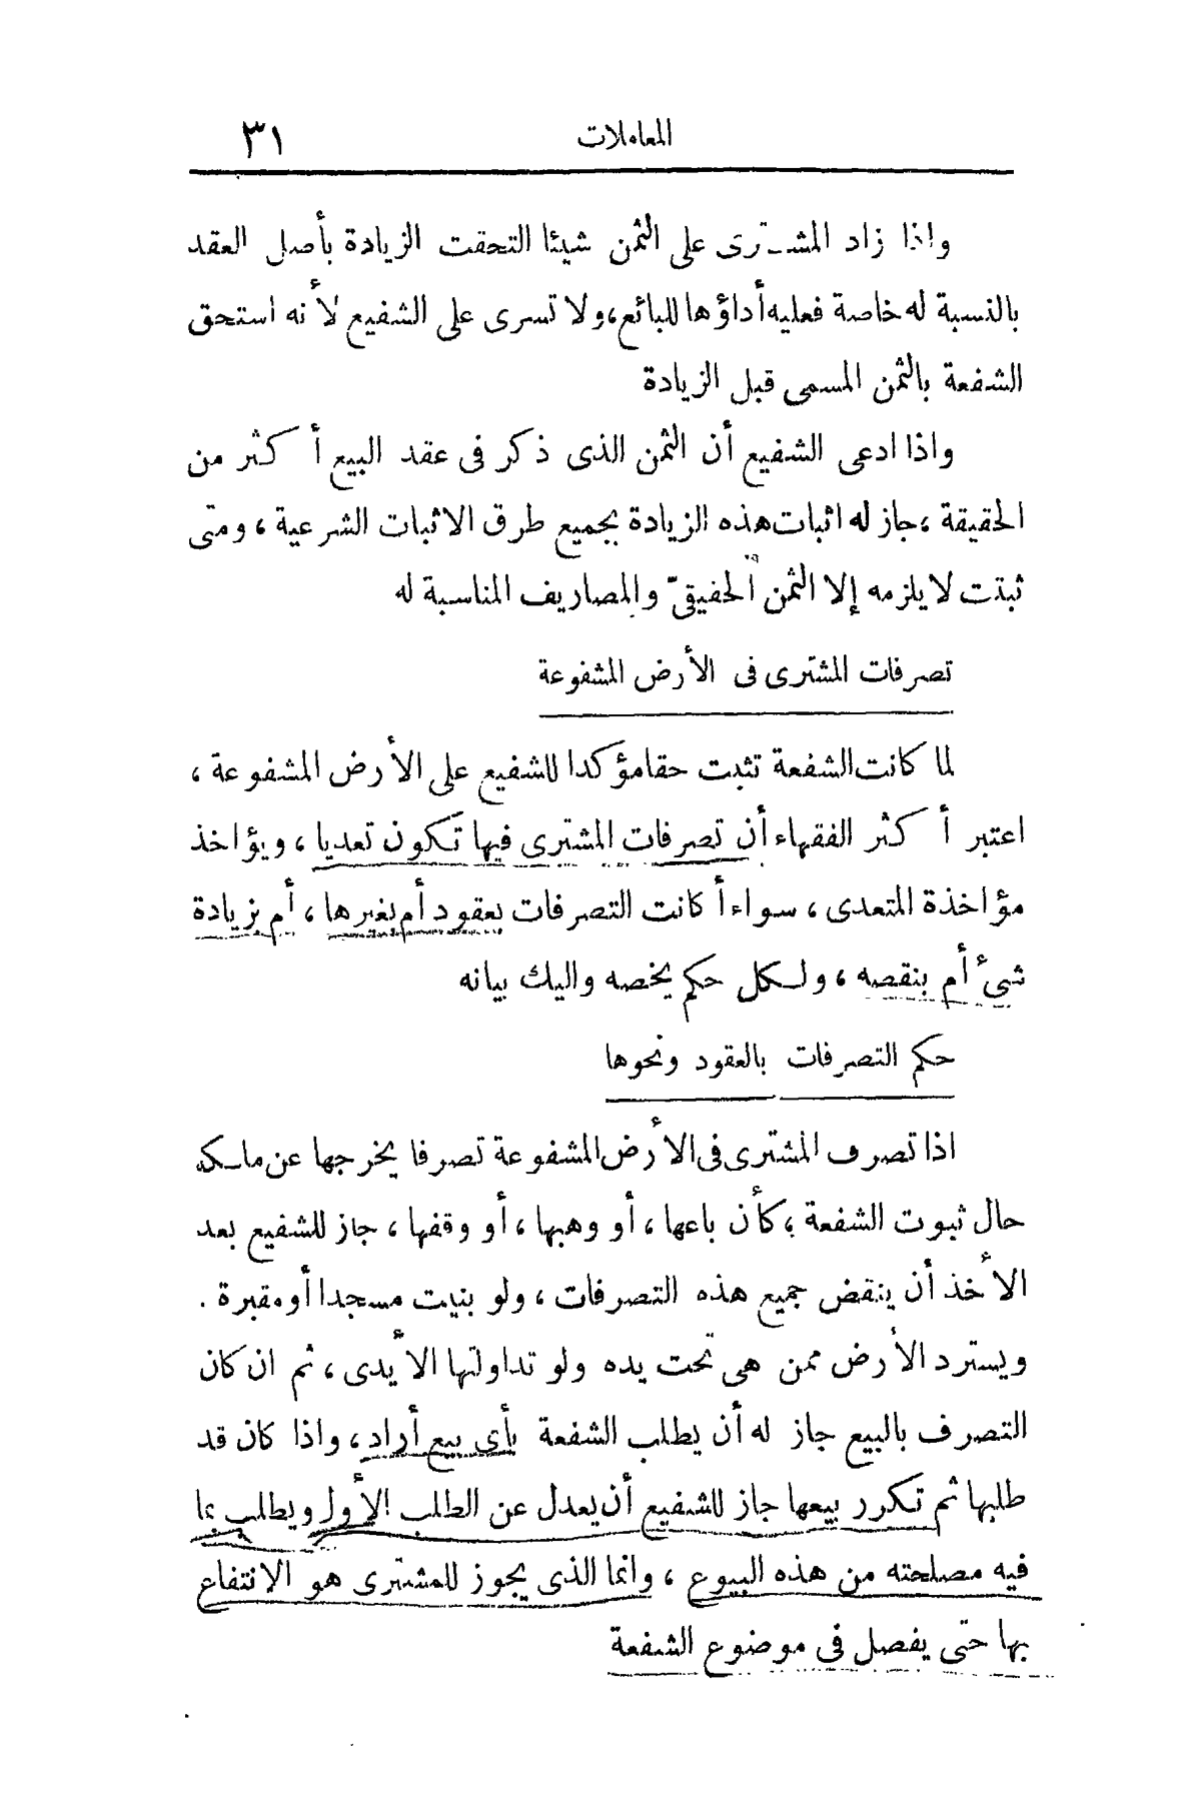 المعاملات ٣١
واذا زاد المشترى على الثمن شيئا التحقت الزيادة بأصل العقد
بالنسبة له خاصة فعليه أداؤها للبائع، ولا تسرى على الشفيع لأنه استحق
الشفعة بالثمن المسمى قبل الزيادة
واذا ادعى الشفيع أن الثمن الذى ذكر فى عقد البيع أكثر من
الحقيقة، جاز له اثبات هذه الزيادة بجميع طرق الاثبات الشرعية، ومتى
ثبتت لا يلزمه إلا الثمن الحقيقىّ والمصاريف المناسبة له
تصرفات المشترى فى الأرض المشفوعة
لما كانت الشفعة تثبت حقا مؤكدا للشفيع على الأرض المشفوعة،
اعتبر أكثر الفقهاء أن تصرفات المشترى فيها تكون تعديا، ويؤاخذ
مؤاخذة المتعدى، سواء أكانت التصرفات بعقود أم بغيرها، أم بزيادة
شىء أم بنقصه، ولكل حكم يخصه واليك بيانه
حكم التصرفات بالعقود ونحوها
اذا تصرف المشترى فى الأرض المشفوعة تصرفا يخرجها عن ملكه
حال ثبوت الشفعة؛ كأن باعها، أو وهبها، أو وقفها، جاز للشفيع بعد
الأخذ أن ينقض جميع هذه التصرفات، ولو بنيت مسجدا أو مقبرة.
ويسترد الأرض ممن هى تحت يده ولو تداولتها الأيدى، ثم ان كان
التصرف بالبيع جاز له أن يطلب الشفعة بأى بيع أراد، واذا كان قد
طلبها ثم تكرر بيعها جاز للشفيع أن يعدل عن الطلب الأول ويطلب بما
فيه مصلحته من هذه البيوع، وانما الذى يجوز للمشترى هو الانتفاع
بها حتى يفصل فى موضوع الشفعة